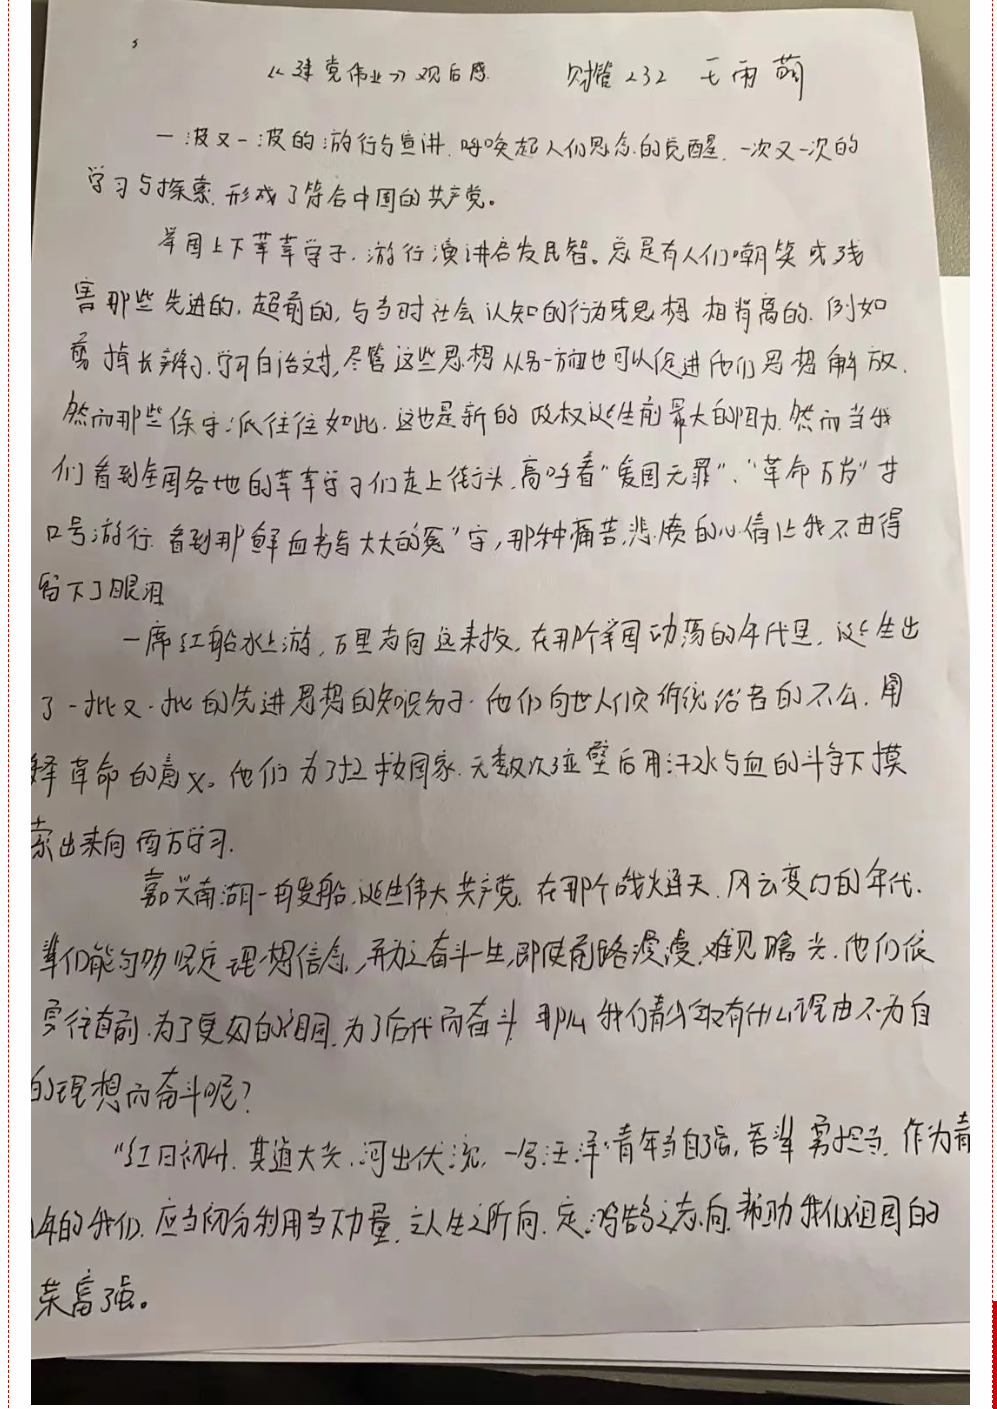 《建党伟业》观后感 财管232 王雨萌
一波又一波的游行与宣讲,呼唤起人们思念的觉醒,一次又一次的
学习与探索,形成了符合中国的共产党。
举国上下莘莘学子,游行演讲启发民智。总是有人们嘲笑或残
害那些先进的,超前的,与当时社会认知的行为或思想相背离的,例如
剪掉长辫子,学习白话文,尽管这些思想从另一方面也可以促进他们思想解放,
然而那些保守派往往如此,这也是新的政权诞生前最大的阻力,然而当我
们看到全国各地的莘莘学子们走上街头,高呼着“爱国无罪”、“革命万岁”等
口号游行,看到那“鲜血书写大大的冤”字,那种痛苦,悲愤的心情让我不由得
留下了眼泪
一席红船水上游,万里志向远来投,在那个举国动荡的年代里,诞生出
了一批又一批的先进思想的知识分子,他们向世人们 统治者的不公,用
释革命的意义。他们为了拯救国家,无数次 壁后用汗水与血的斗争下摸
索出来向西方学习.
嘉兴南湖一 船,诞生伟大共产党,在那个战火连天,风云变幻的年代,
辈们能够坚定理想信念,并为之奋斗一生,即使前路漫漫,难见曙光,他们依
勇往直前,为了更好的祖国,为了后代而奋斗,那么我们青少年又有什么理由不为自
的理想而奋斗呢?
“红日初升,其道大光,河出伏流,一泻汪洋”青年当自强,吾辈勇担当,作为青
年的我们,应当充分利用当下力量,立人生之所向,定鸿鹄之志向,帮助我们祖国的
荣富强。